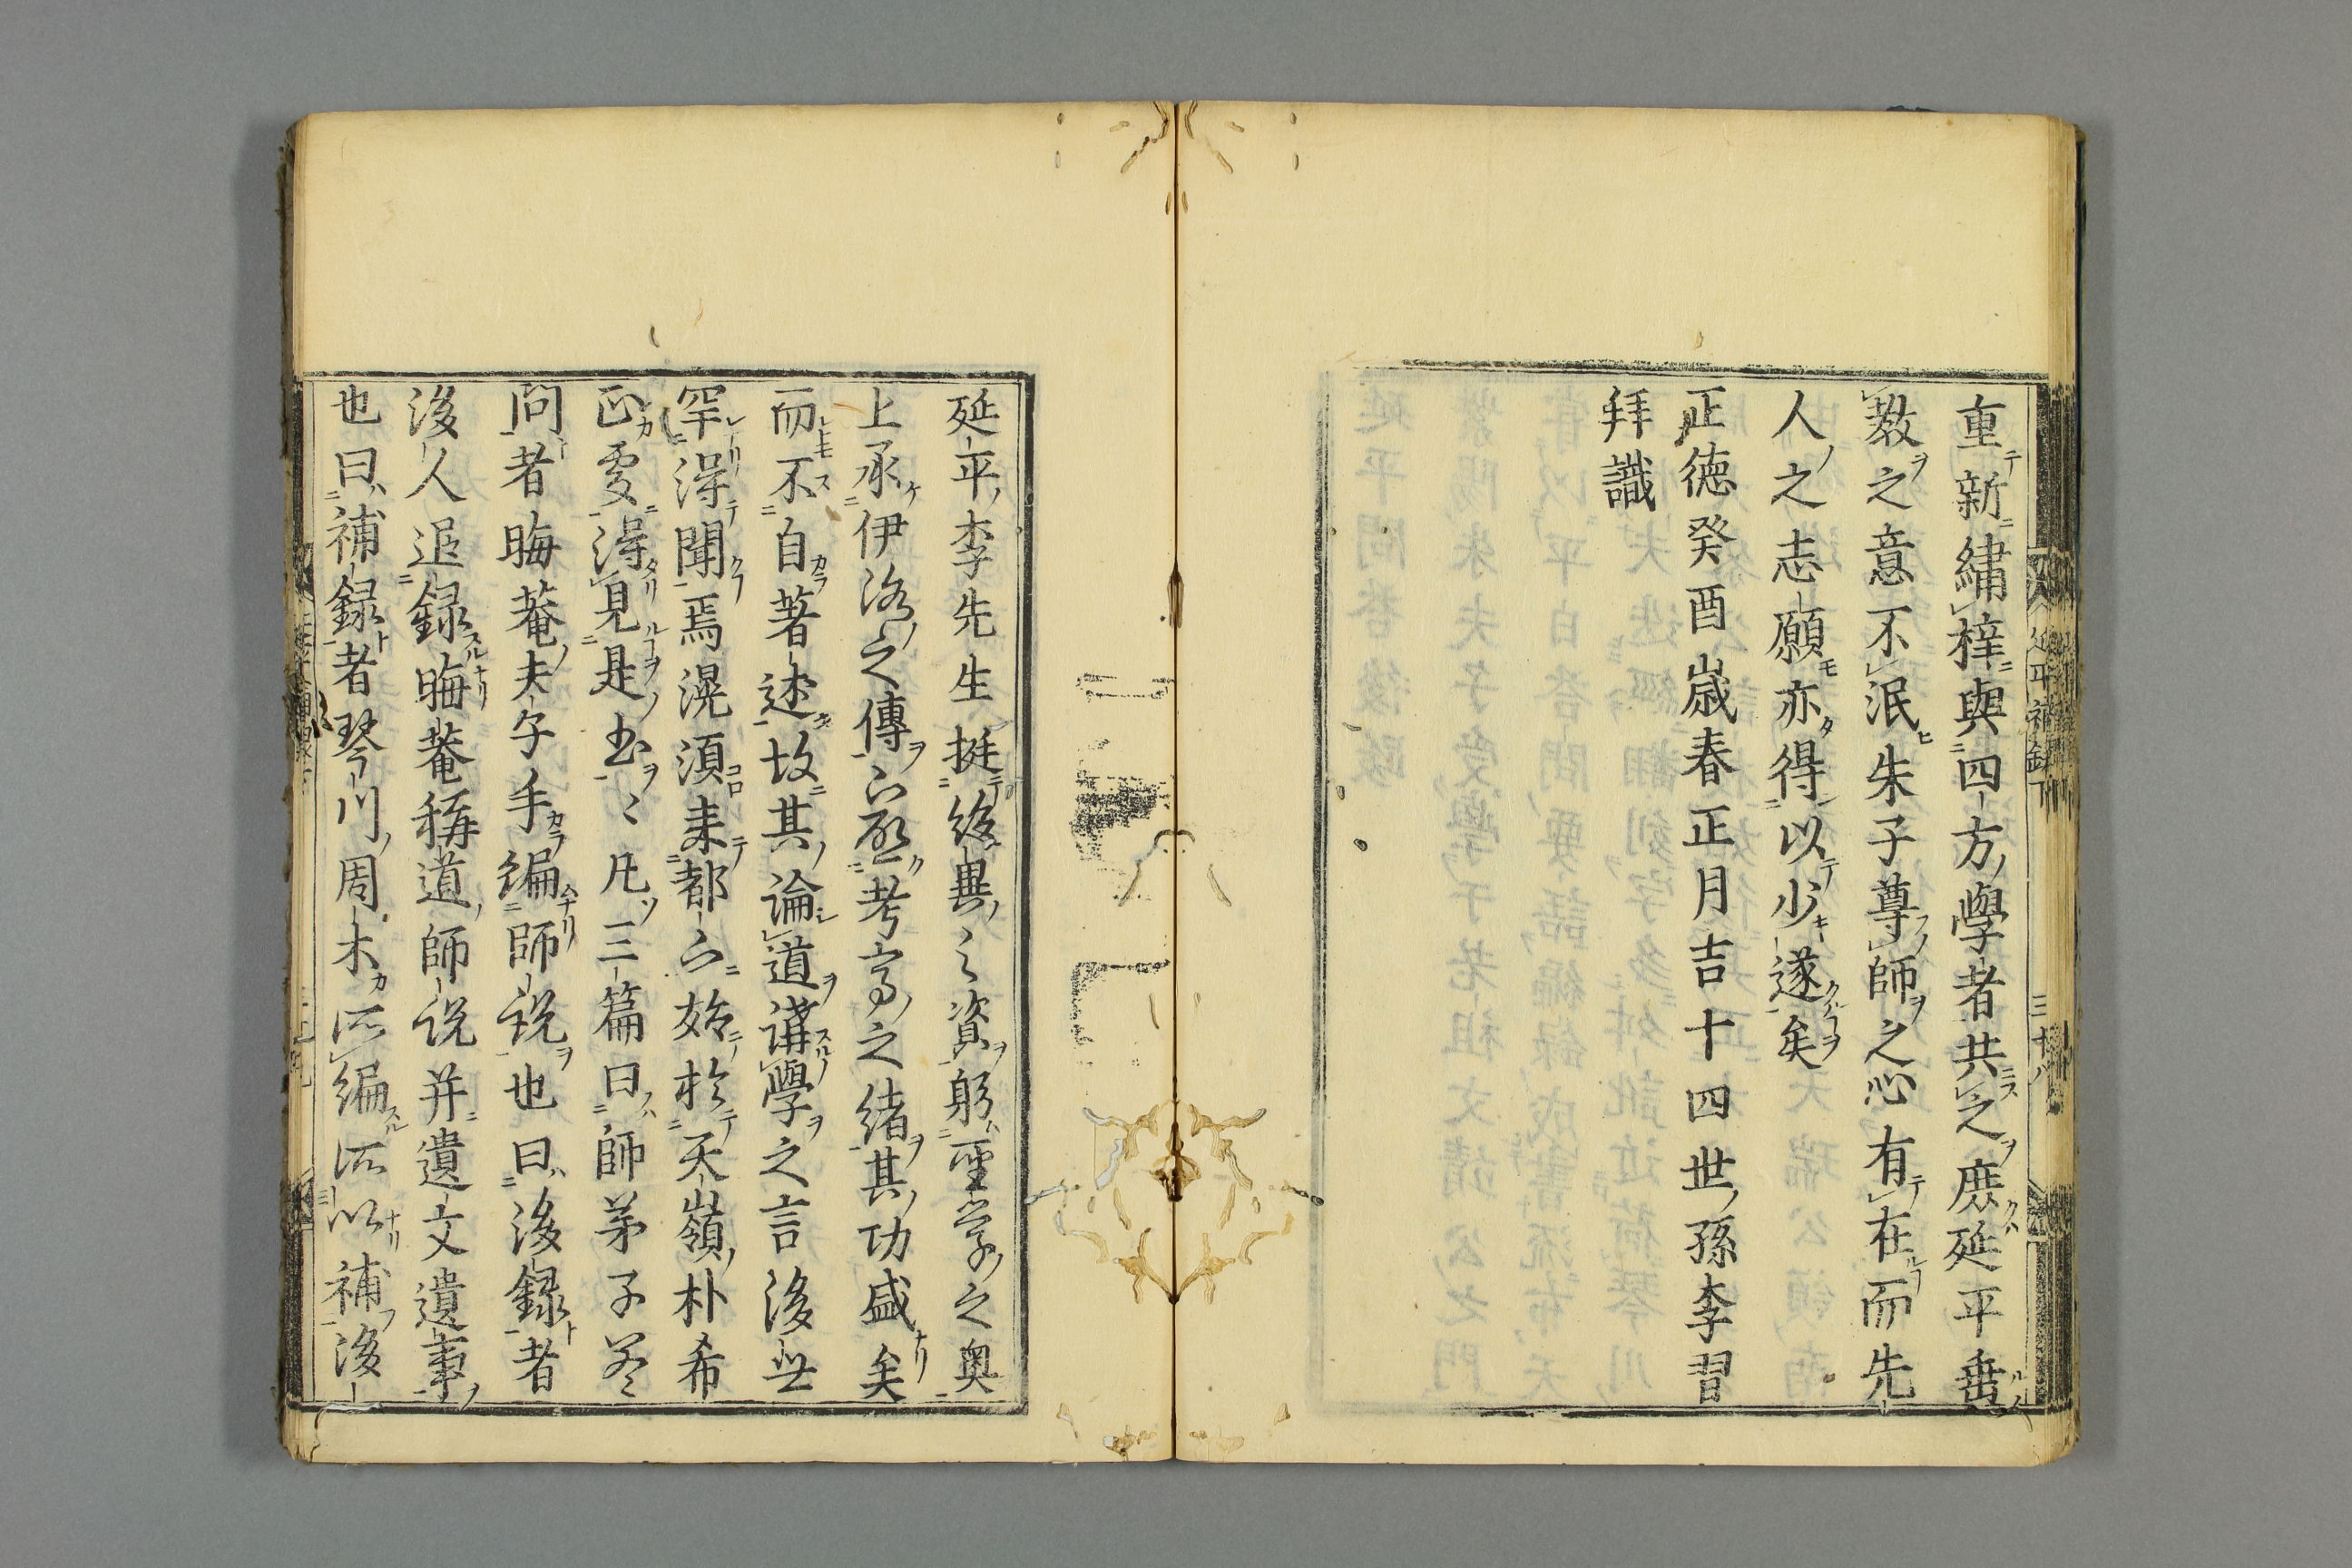 重新繡梓與四方學者共之庶延平垂
教之意不泯朱子尊師之心有在而先
人之志願亦得以少遂矣
正德癸酉歲春正月吉十四世孫李習
拜識
延平李先生挺絶異之資躬聖学之奥
上承伊洛之傳下啓考亭之緒其功盛矣
而不自著述故其論道講學之言後世
罕得聞焉滉須来都下始於天嶺朴希
正處得見是書〻凡三篇曰師弟子荅
問者晦菴夫子手編師說也曰後録者
後人追録晦菴稱道師說并遺文遺事
也曰補録者琴川周木所編所以補後